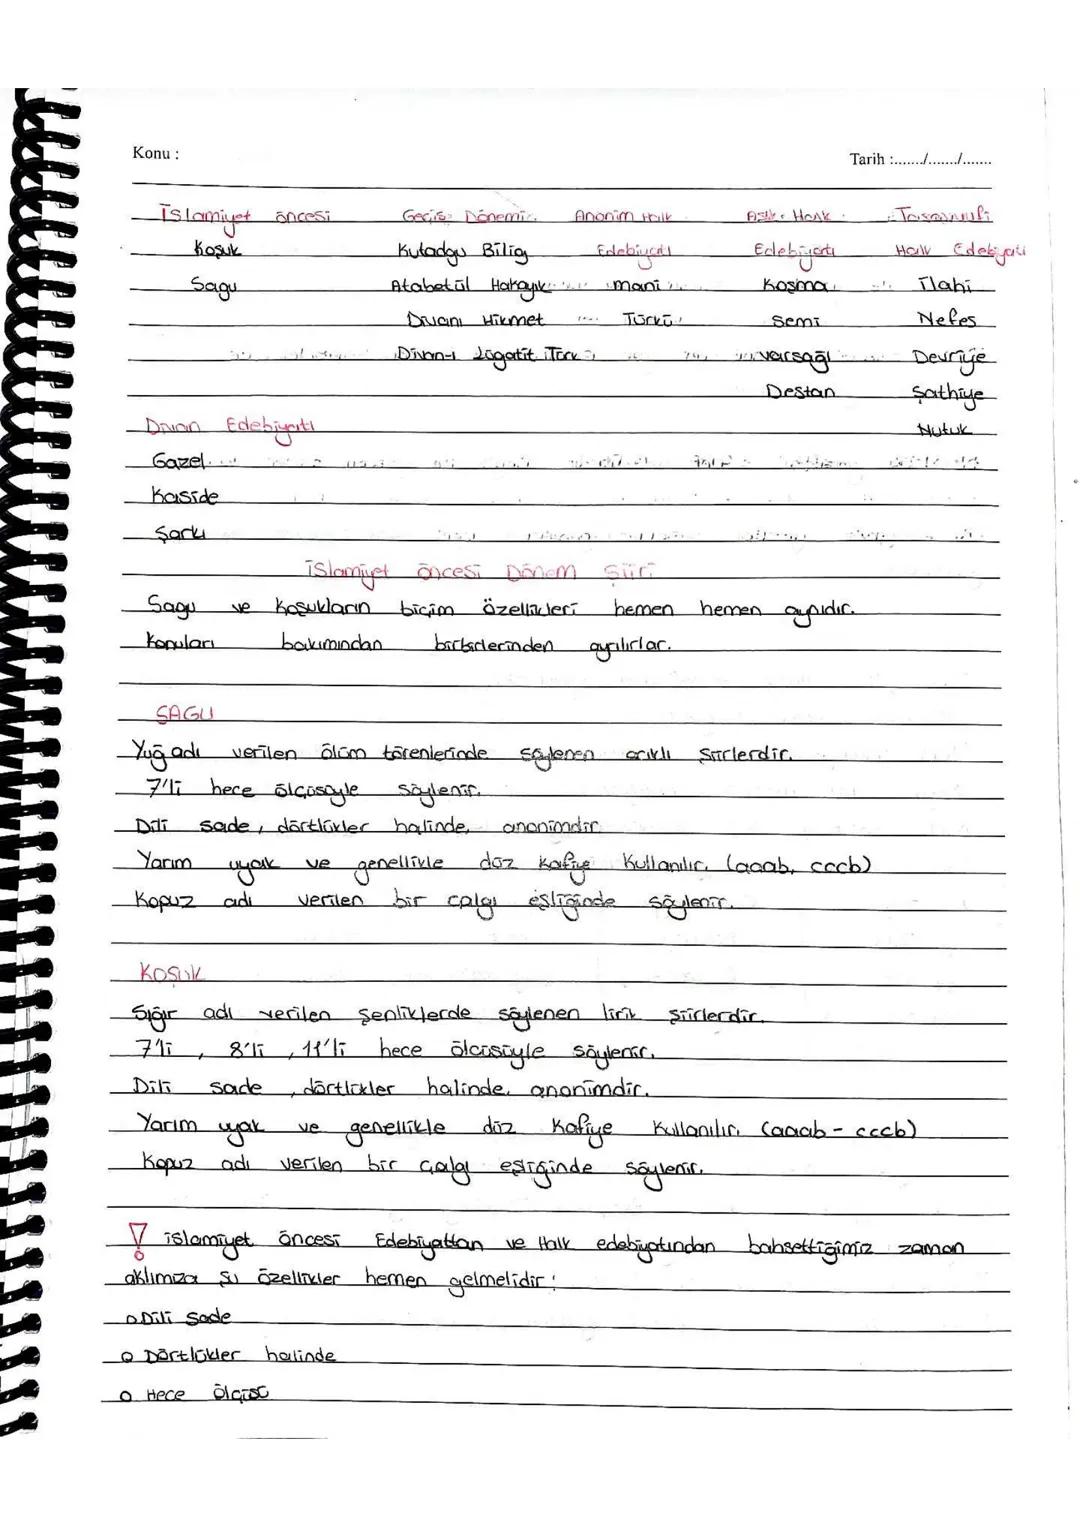 Konu :
Tarih :......./......./.......
İslamiyet öncesi Geçiş Dönemi Anonim Halk Aşık Halk Tasavvufi
Koşuk Kutadgu Bilig Edebiyatı Edebiyatı Halk Edebiyatı
Sagu Atabetül Hakayık mani Koşma İlahi
Divanı Hikmet Türkü Semi Nefes
Divan-ı Lügatit Türk varsağı Devriye
Destan Şathiye
Divan Edebiyatı Nutuk
Gazel
Kaside
Şarkı
İslamiyet öncesi Dönem Şiiri
Sagu ve Koşukların biçim özellikleri hemen hemen aynıdır.
Konuları bakımından birbirlerinden ayrılırlar.
SAGU
Yuğ adı verilen ölüm törenlerinde söylenen şiirlerdir.
7'li hece ölçüsüyle söylenir.
Dili sade, dörtlükler halinde, anonimdir
Yarım uyak ve genellikle düz kafiye kullanılır. (aaab, cccb)
Kopuz adı verilen bir çalgı eşliğinde söylenir.
KOŞUK
Sığır adı verilen şenliklerde söylenen lirik şiirlerdir.
7'li, 8'li, 11'li hece ölçüsüyle söylenir.
Dili sade, dörtlükler halinde, anonimdir.
Yarım uyak ve genellikle düz Kafiye Kullanılır. (aaab - cccb)
Kopuz adı verilen bir çalgı eşiğinde söylenir.
! İslamiyet öncesi Edebiyattan ve Halk edebiyatından bahsettiğimiz zaman
aklımıza şu özellikler hemen gelmelidir:
o Dili Sade
o Dörtlükler halinde
o Hece Ölçüsü